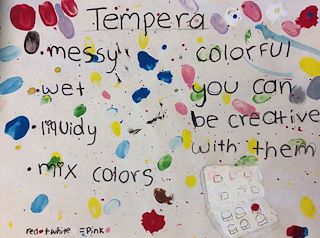 Tempera
• messy
• wet
• liquidy
• mix colors
colorful
you can
be creative
with them
red + white = Pink